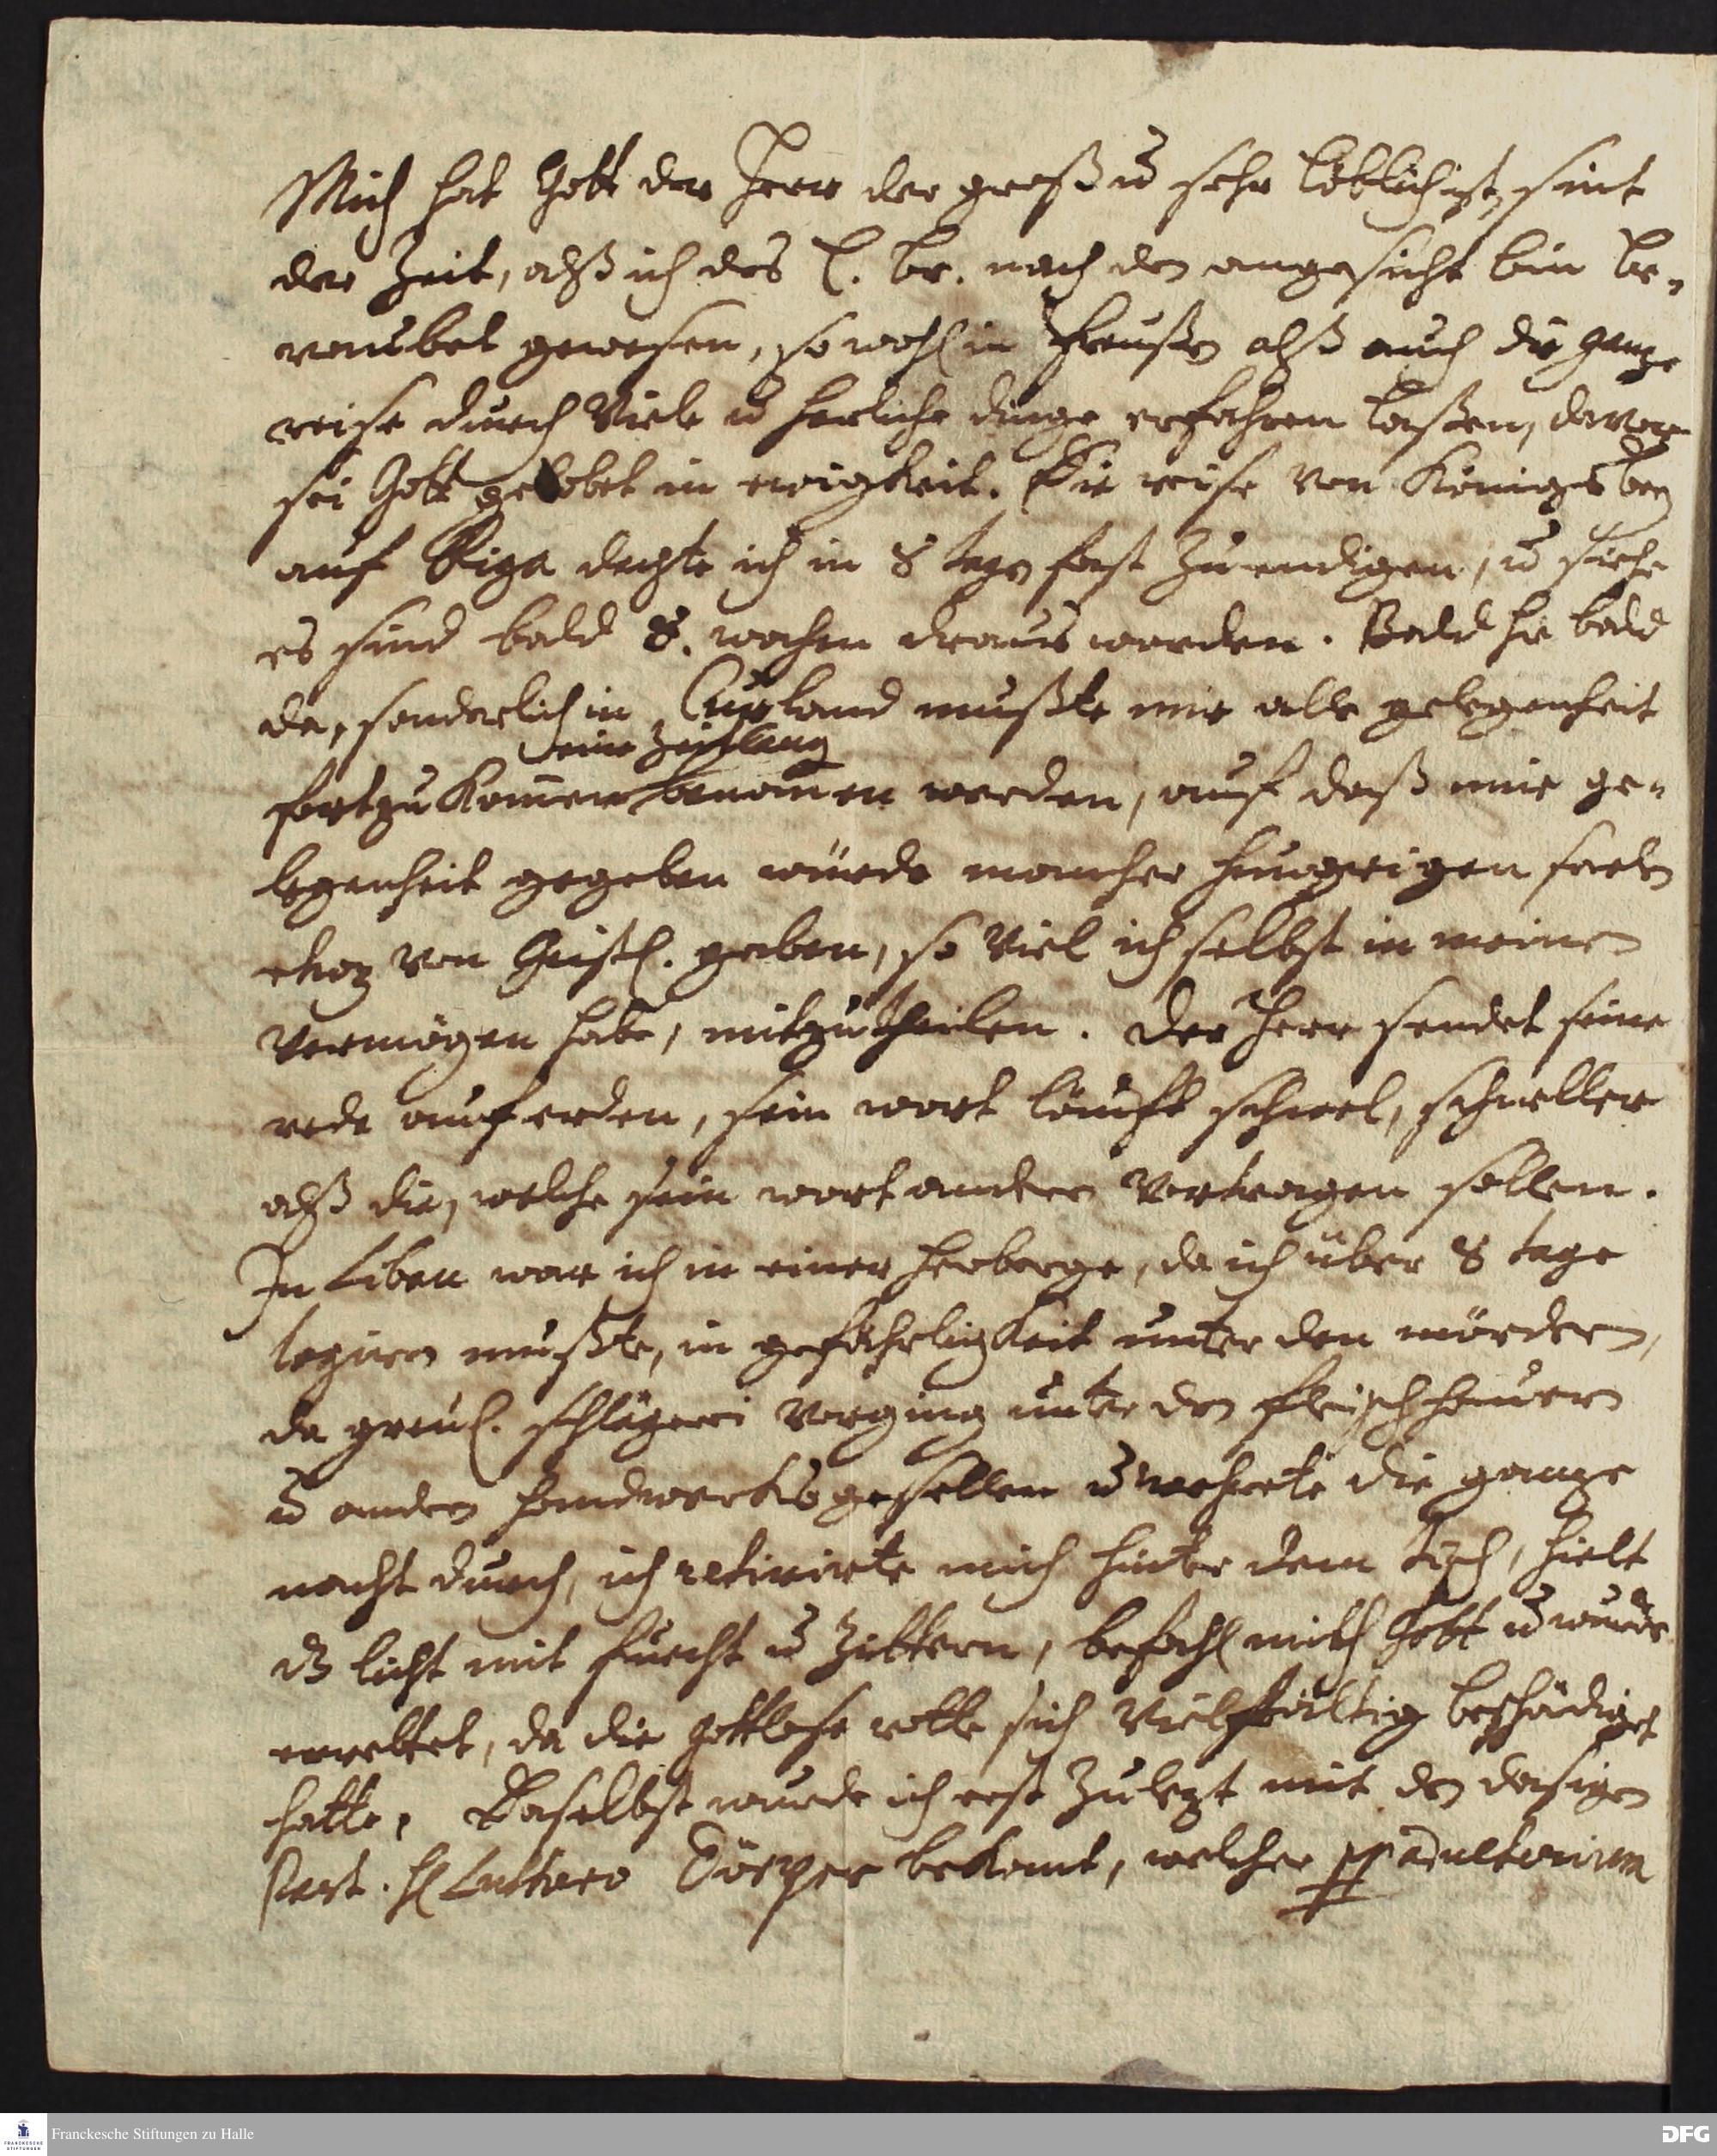 Mich hat Gott der Herr der groß u sehr löblich ist, sint
der Zeit, alß ich des l. br. nach den angesicht bin be-
raubet gewesen, so wohl in Preußen alß auch die gantze
reise durch viele u herliche dinge erfahren laßen, davor
sei Gott gelobet in ewigkeit. Die reise von Königsberg
auf Riga dachte ich in 8 tagen fast zu endigen, u siehe
es sind bald 8. wochen draus worden. Bald hie bald
da, sonderlich in Curland mußte mir alle gelegenheit
eine Zeitlang
fortzukommen benommen werden, auf daß mir ge-
legenheit gegeben würde mancher hungrigen seelen
etwz von Geistl. gaben, so viel ich selbst in meinen
vermögen habe, mitzutheilen. Der Herr sendet seine
rede auf erden, sein wort läuft schnel, schneller
alß die, welche sein wort andern vortragen sollen.
In Libau war ich in einer herberge, da ich über 8 tage
logiren mußte, in gefährligkeit unter den mördern,
da greul. schlägerei vorging unter den fleischhauern
u andern handwerksgesellen u wehrete die gantze
nacht durch, ich retirirte mich hinter dem tisch, hielt
dz licht mit furcht u zittern, befahl mich Gott u wurde
errettet, da die gottlose rotte sich vielfältig beschädiget
hatte. Daselbst wurde ich erst zuletzt mit den dasigen
Past. H Luthero Dörper bekant, welcher pp adulterium